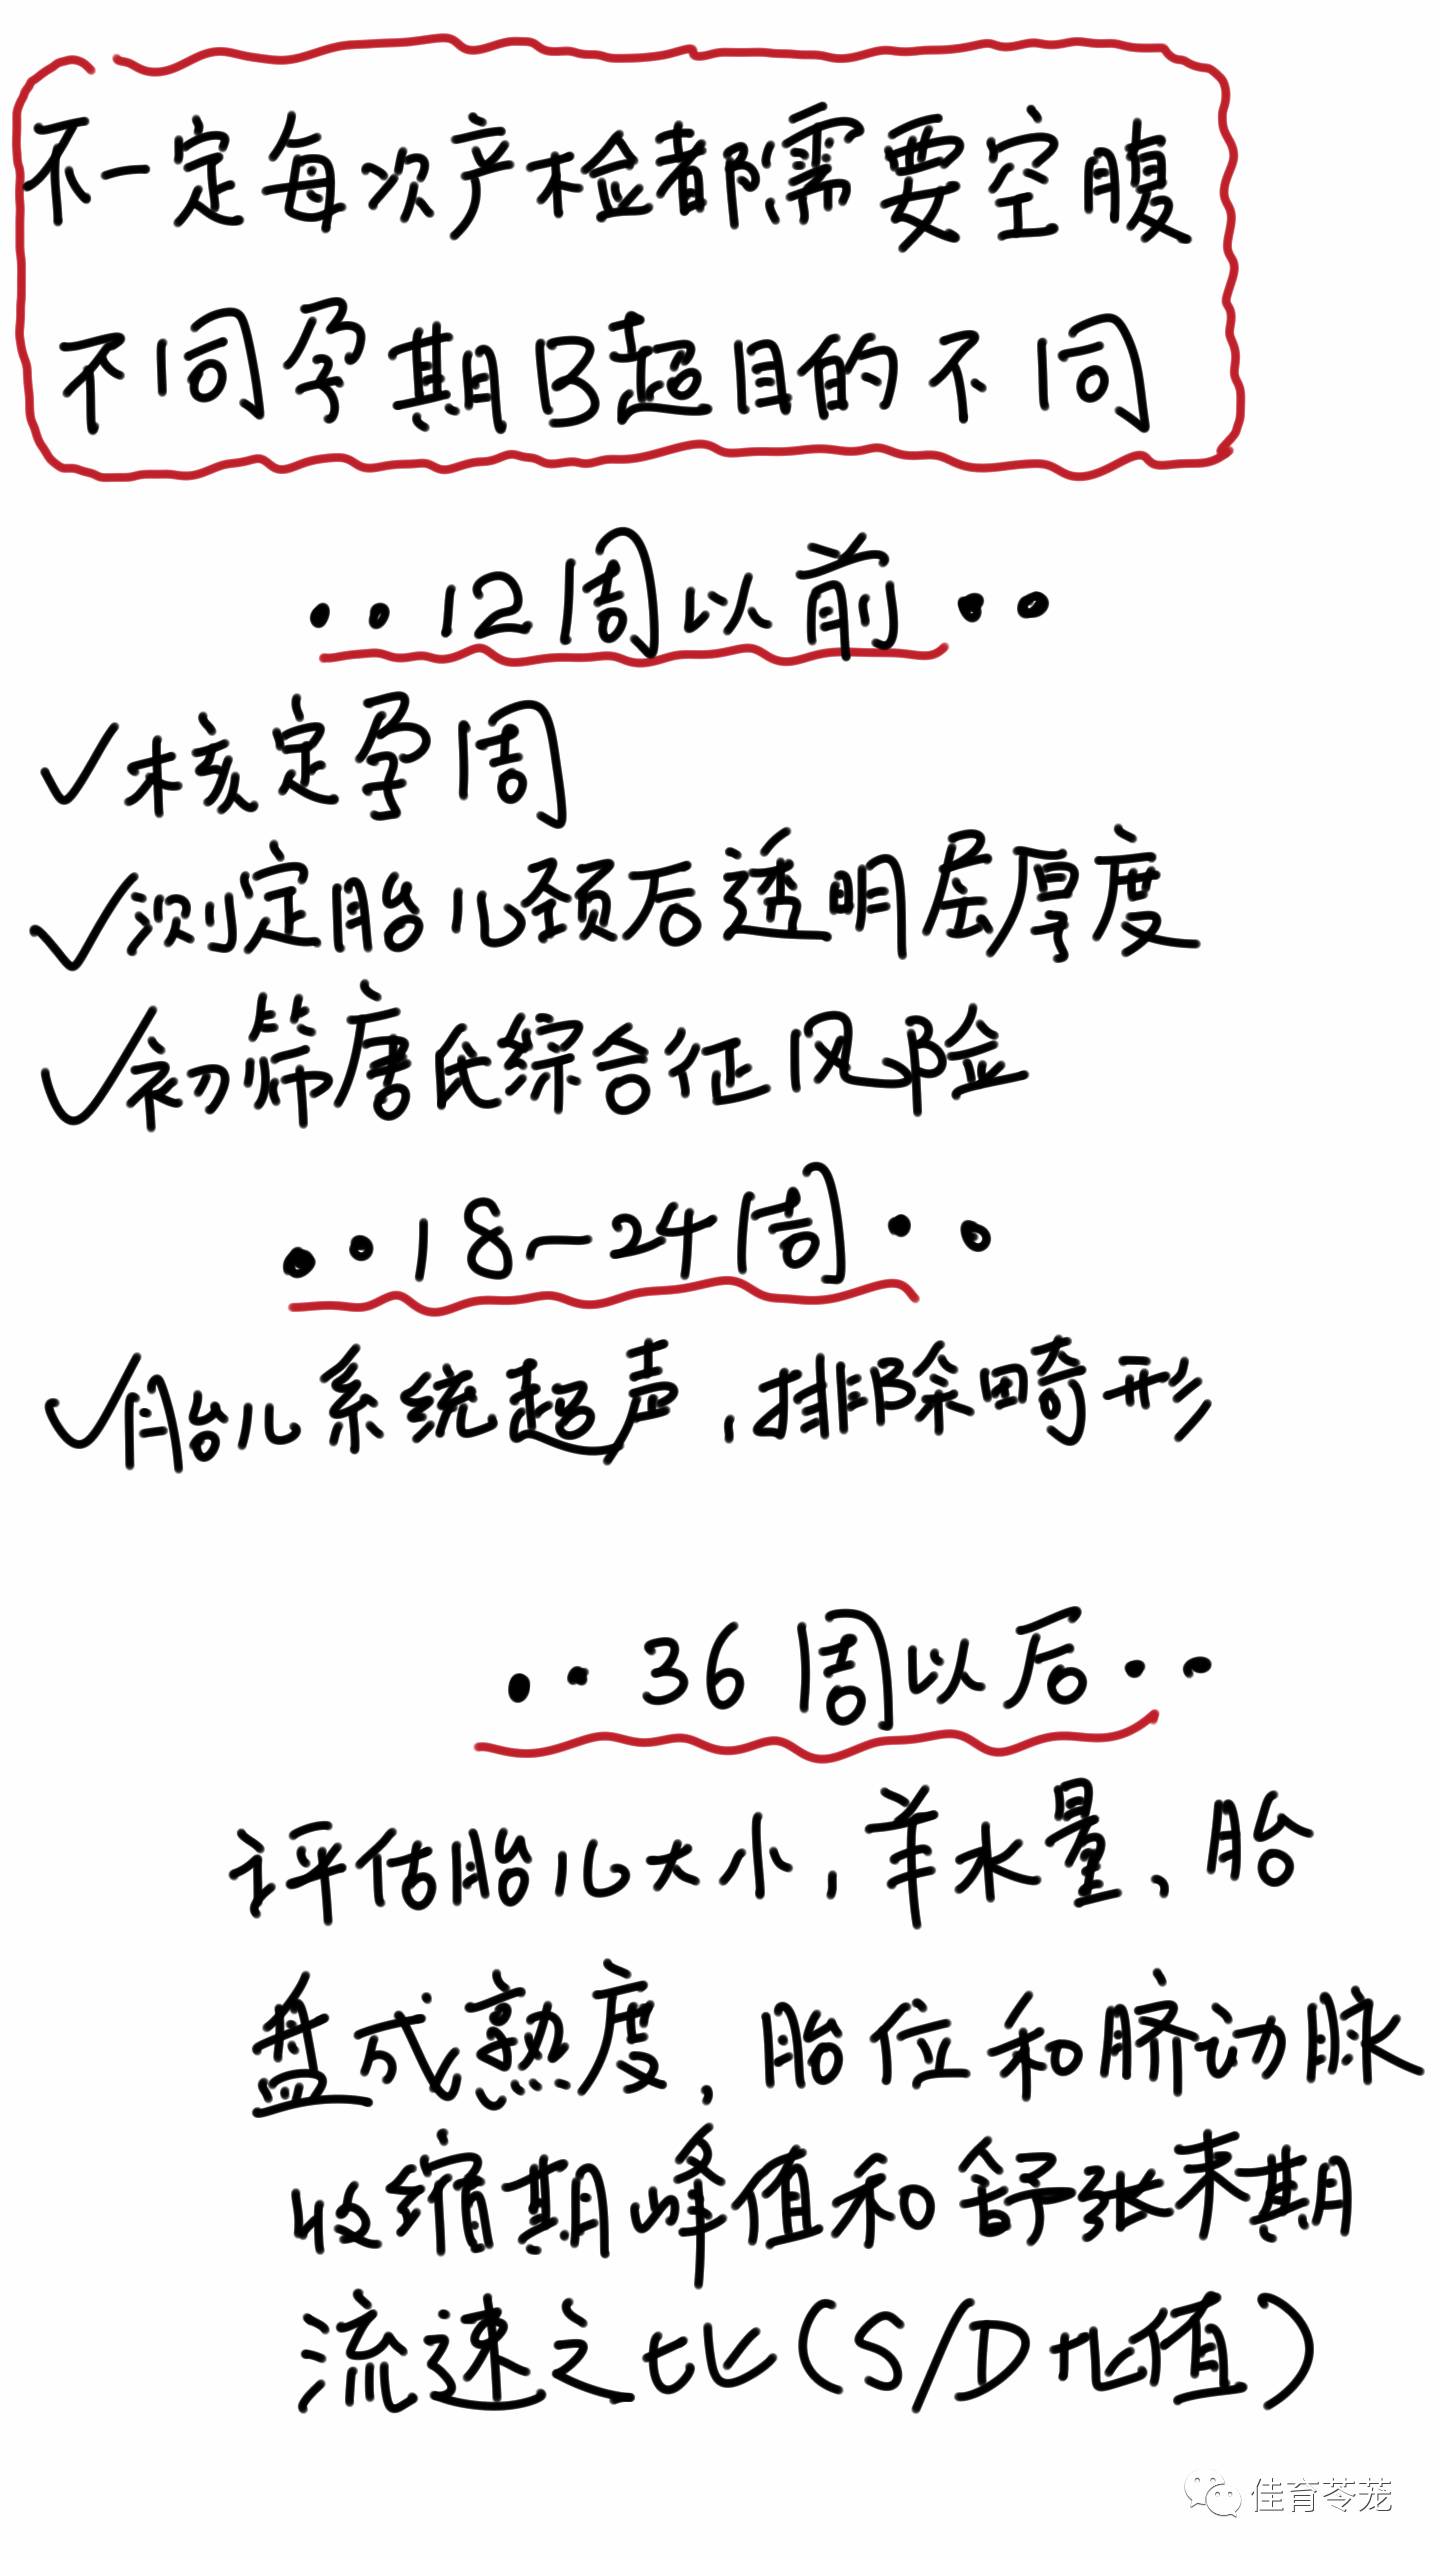 不一定每次产检都需要空腹
不同孕期B超目的不同
··12周以前··
✓核定孕周
✓测定胎儿颈后透明层厚度
✓初筛唐氏综合征风险
··18-24周··
✓胎儿系统超声,排除畸形
··36周以后··
评估胎儿大小,羊水量、胎
盘成熟度,胎位和脐动脉
收缩期峰值和舒张末期
流速之比(S/D比值)
佳育苓茏